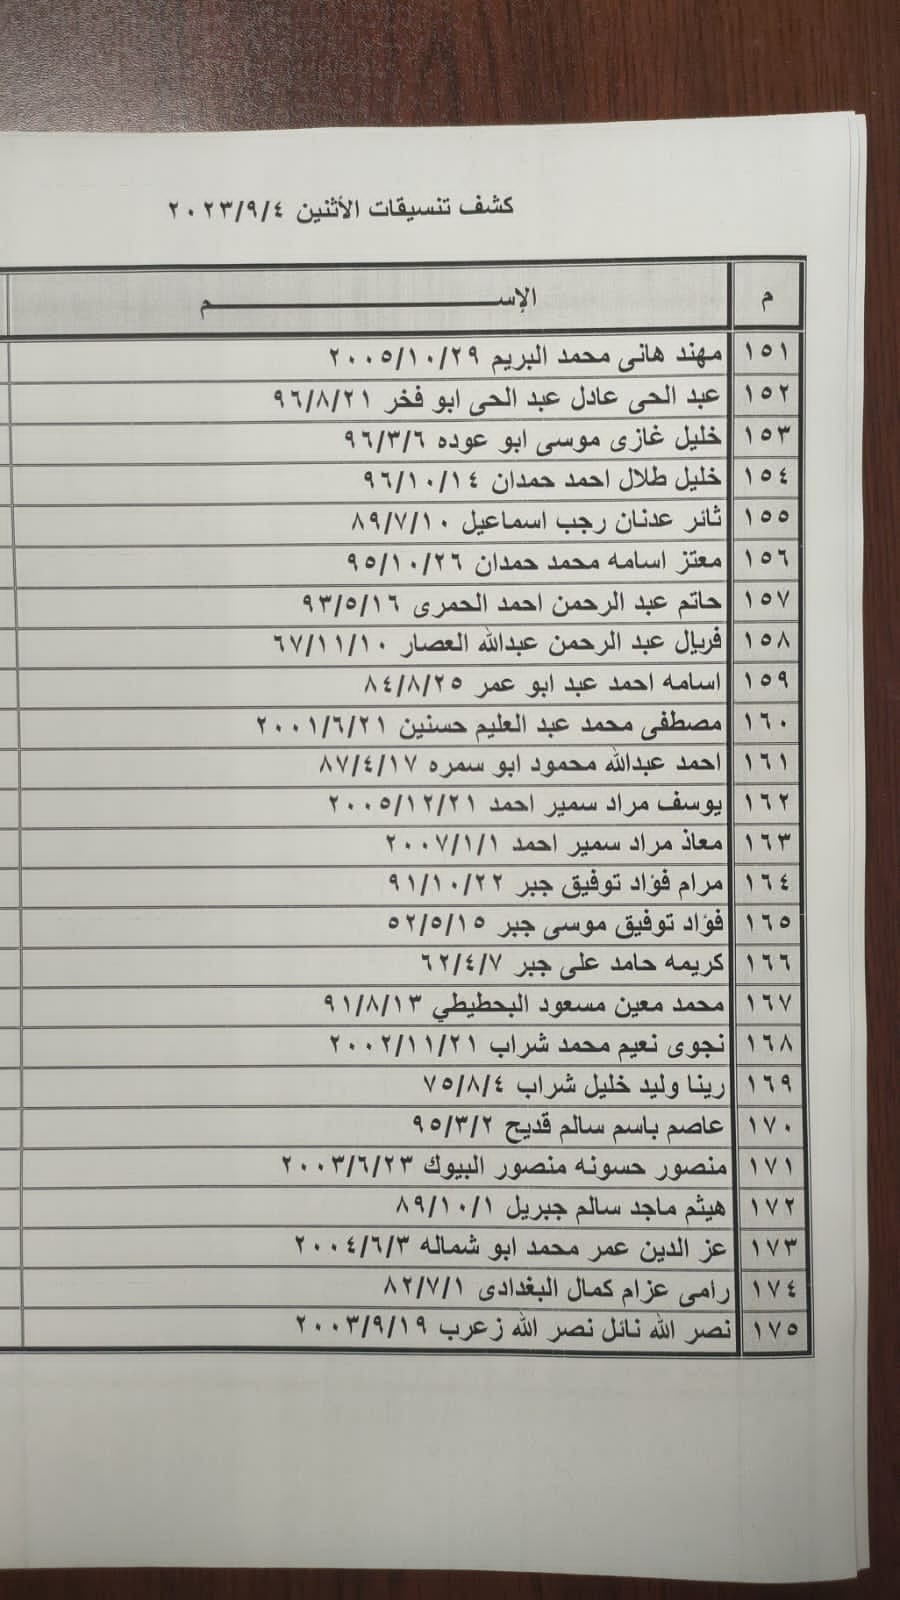 كشف تنسيقات الأثنين ٢٠٢٣/٩/٤
م الإســـــم
١٥١ مهند هانى محمد البريم ٢٠٠٥/١٠/٢٩
١٥٢ عبد الحى عادل عبد الحى ابو فخر ٩٦/٨/٢١
١٥٣ خليل غازى موسى ابو عوده ٩٦/٣/٦
١٥٤ خليل طلال احمد حمدان ٩٦/١٠/١٤
١٥٥ ثائر عدنان رجب اسماعيل ٨٩/٧/١٠
١٥٦ معتز اسامه محمد حمدان ٩٥/١٠/٢٦
١٥٧ حاتم عبد الرحمن احمد الحمرى ٩٣/٥/١٦
١٥٨ فريال عبد الرحمن عبدالله العصار ٦٧/١١/١٠
١٥٩ اسامه احمد عبد ابو عمر ٨٤/٨/٢٥
١٦٠ مصطفى محمد عبد العليم حسنين ٢٠٠١/٦/٢١
١٦١ احمد عبدالله محمود ابو سمره ٨٧/٤/١٧
١٦٢ يوسف مراد سمير احمد ٢٠٠٥/١٢/٢١
١٦٣ معاذ مراد سمير احمد ٢٠٠٧/١/١
١٦٤ مرام فؤاد توفيق جبر ٩١/١٠/٢٢
١٦٥ فؤاد توفيق موسى جبر ٥٢/٥/١٥
١٦٦ كريمه حامد على جبر ٦٢/٤/٧
١٦٧ محمد معين مسعود البحطيطي ٩١/٨/١٣
١٦٨ نجوى نعيم محمد شراب ٢٠٠٢/١١/٢١
١٦٩ رينا وليد خليل شراب ٧٥/٨/٤
١٧٠ عاصم باسم سالم قديح ٩٥/٣/٢
١٧١ منصور حسونه منصور البيوك ٢٠٠٣/٦/٢٣
١٧٢ هيثم ماجد سالم جبريل ٨٩/١٠/١
١٧٣ عز الدين عمر محمد ابو شماله ٢٠٠٤/٦/٣
١٧٤ رامى عزام كمال البغدادى ٨٢/٧/١
١٧٥ نصر الله نائل نصر الله زعرب ٢٠٠٣/٩/١٩